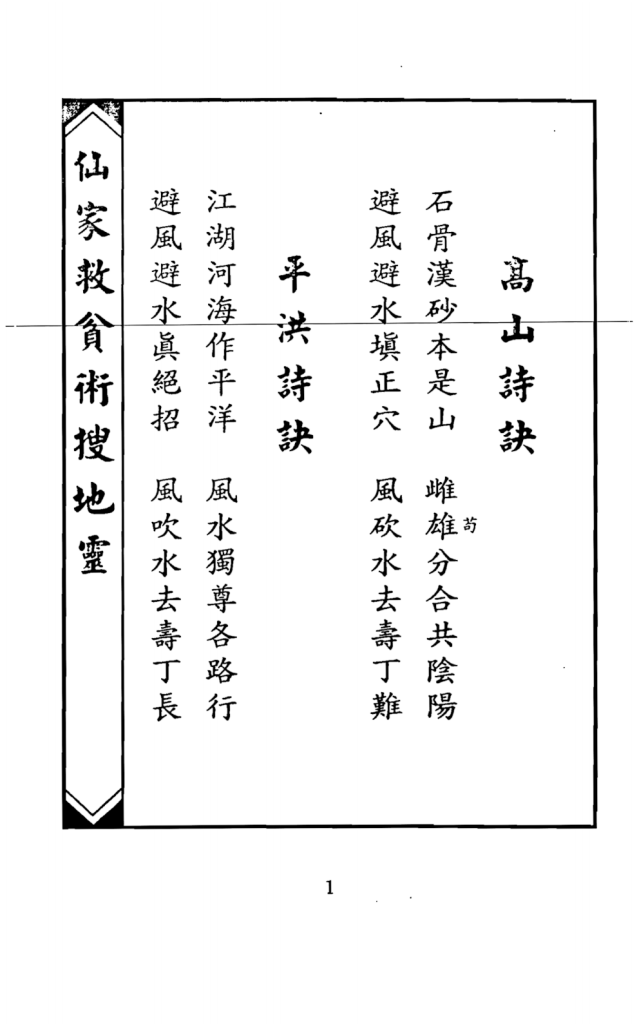 高山詩訣
石骨漢砂本是山　雌雄分合共陰陽
苟
避風避水塡正穴　風砍水去壽丁難
平洪詩訣
江湖河海作平洋　風水獨尊各路行
避風避水眞絕招　風吹水去壽丁長
仙家救貧術搜地靈
1